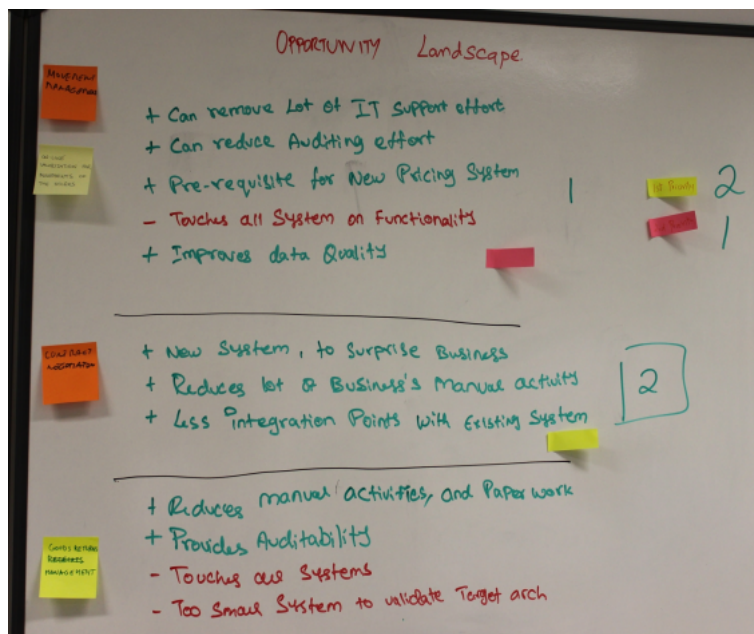 OPPORTUNITY Landscape
MOVEMENT
MANAGEMENT
+ Can remove Lot of IT Support effort
+ Can reduce Auditing effort
+ Pre-requisite for New Pricing System
- Touches all System on Functionality
+ Improves data Quality
1
1st Priority
2
1
+ New System, to Surprise Business
+ Reduces lot of Business's Manual activity
+ Less Integration Points with Existing System
2
+ Reduces manual activities, and Paper work
+ Provides Auditability
- Touches all Systems
- Too Small System to validate Target arch
GOODS RETURN
MANAGEMENT